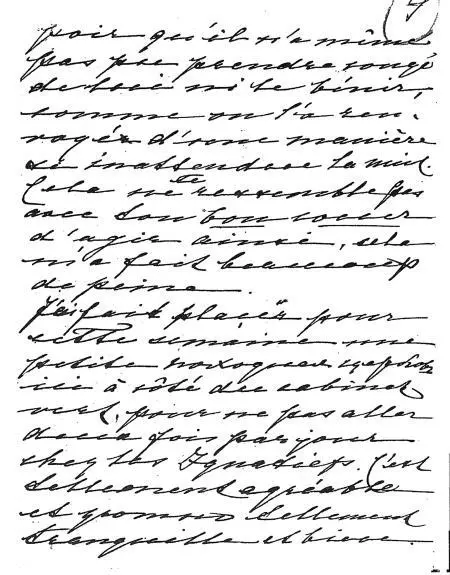 4
voir qu'il n'a même
pas pu prendre congé
de toi ni te bénir,
comme on l'a ren-
voyé d'une manière
si inattendue la nuit.
Cela ne te ressemble pas
avec ton bon coeur
d'agir ainsi, cela
m'a fait beaucoup
de peine.
J'ai fait placer pour
cette semaine une
petite
ici à côté du cabinet
vert, pour ne pas aller
deux fois par jour
chez les Ignatiefs. C'est
tellement agréable
et tellement
tranquille et bien.